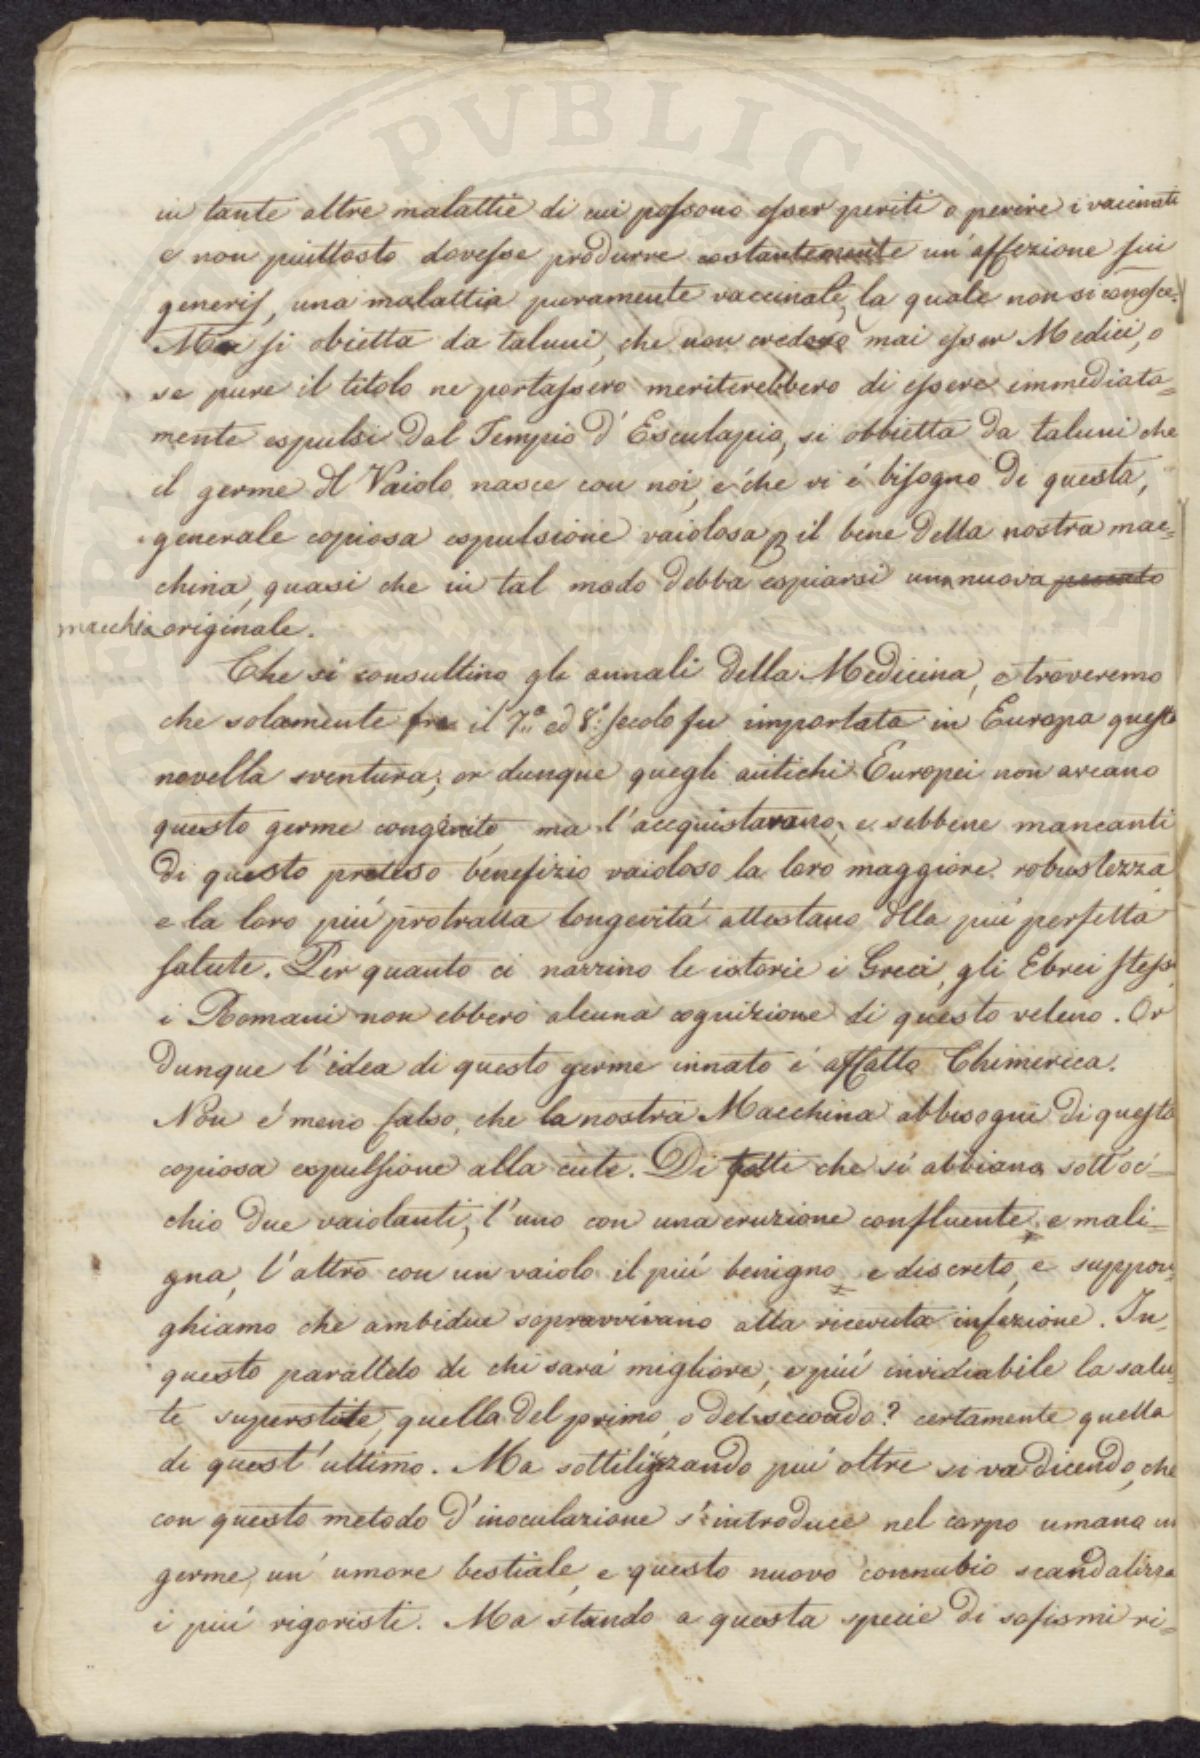 in tante altre malattie di cui possono esser periti o perire i vaccinati
e non piuttosto dovesse produrre costantemente un'affezione sui
generis, una malattia puramente vaccinale, la quale non si conosce.
Ma si obietta da taluni, che non credono mai esser Medici, o
se pure il titolo ne portassero meriterebbero di essere immediata=
mente espulsi dal Tempio d'Esculapio, si obbietta da taluni che
il germe dl Vaiolo nasce con noi, e che vi é bisogno di questa,
generale copiosa espulsione vaiolosa p il bene della nostra mac=
china, quasi che in tal modo debba espiarsi una nuova peccato
macchia originale.
Che si consultino gli annali della Medicina, e troveremo
che solamente fra il 7.º ed 8.º secolo fu importata in Europa questa
novella sventura; or dunque quegli antichi Europei non aveano
questo germe congenito ma l'acquistarano, e sebbene mancanti
di questo preteso benefizio vaioloso la loro maggiore robustezza
e la loro piú protratta longevitá attestano dlla piú perfetta
salute. Per quanto ci narrino le istorie i Greci, gli Ebrei stessi
i Romani non ebbero alcuna cognizione di questo veleno. Or
dunque l'idea di questo germe innato é affatto Chimerica.
Non é meno falso, che la nostra Macchina abbisogni di questa
copiosa espulsione alla cute. Di fatti che si abbiano sott'oc=
chio due vaiolanti, l'uno con una eruzione confluente, e mali=
gna, l'altro con un vaiolo il piú benigno, e discreto, e suppon=
ghiamo che ambidue sopravvivano alla ricevuta infezione. In
questo parallelo di chi sará migliore, e piú invidiabile la salu=
te superstite, quella del primo, o del secondo? certamente quella
di quest'ultimo. Ma sottilizzando piú oltre si va dicendo, che
con questo metodo d'inoculazione s'introduce nel corpo umano un
germe, un' umore bestiale, e questo nuovo connubio scandalizza
i piú rigoristi. Ma stando a questa specie di sofismi ri=